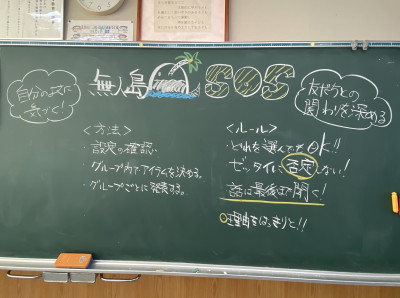 自分の良さに
気づく!
無人島
SOS
友だちとの
関わりを深める
<方法>
・設定の確認
・グループ内でアイテムを決める。
・グループごとに発表する。
<ルール>
・どれを選んでもOK!!
・ゼッタイに否定しない!
・話は最後まで聞く!
○理由をはっきりと!!